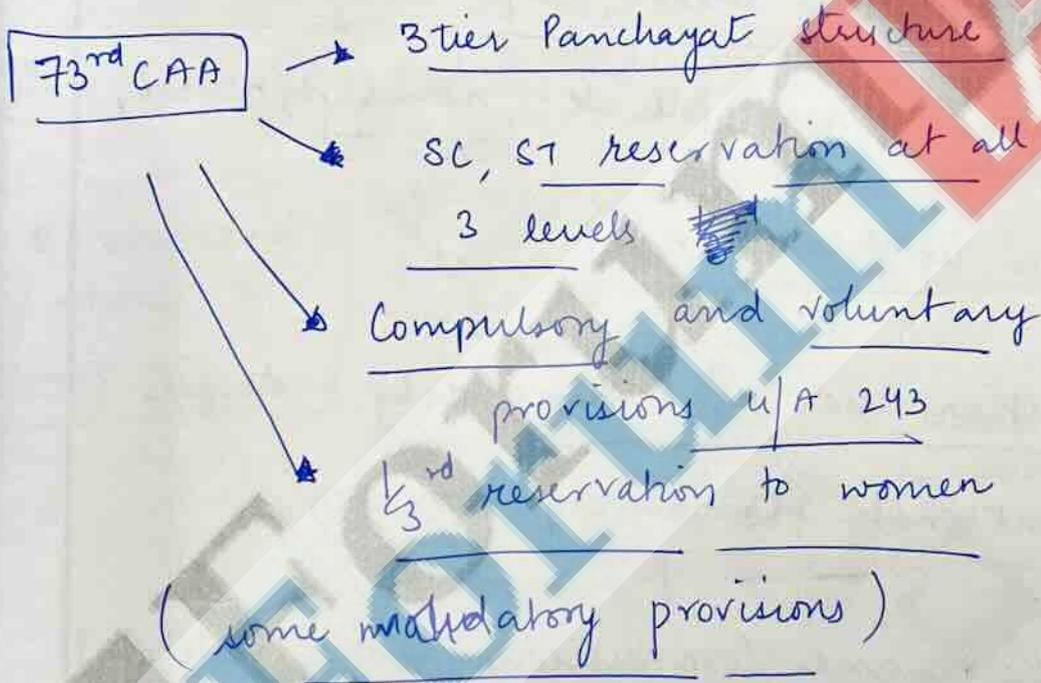 73rd CAA
3 tier Panchayat structure
SC, ST reservation at all
3 levels
Compulsory and voluntary
provisions u/A 243
1/3rd reservation to women
(some mandatory provisions)
Forum